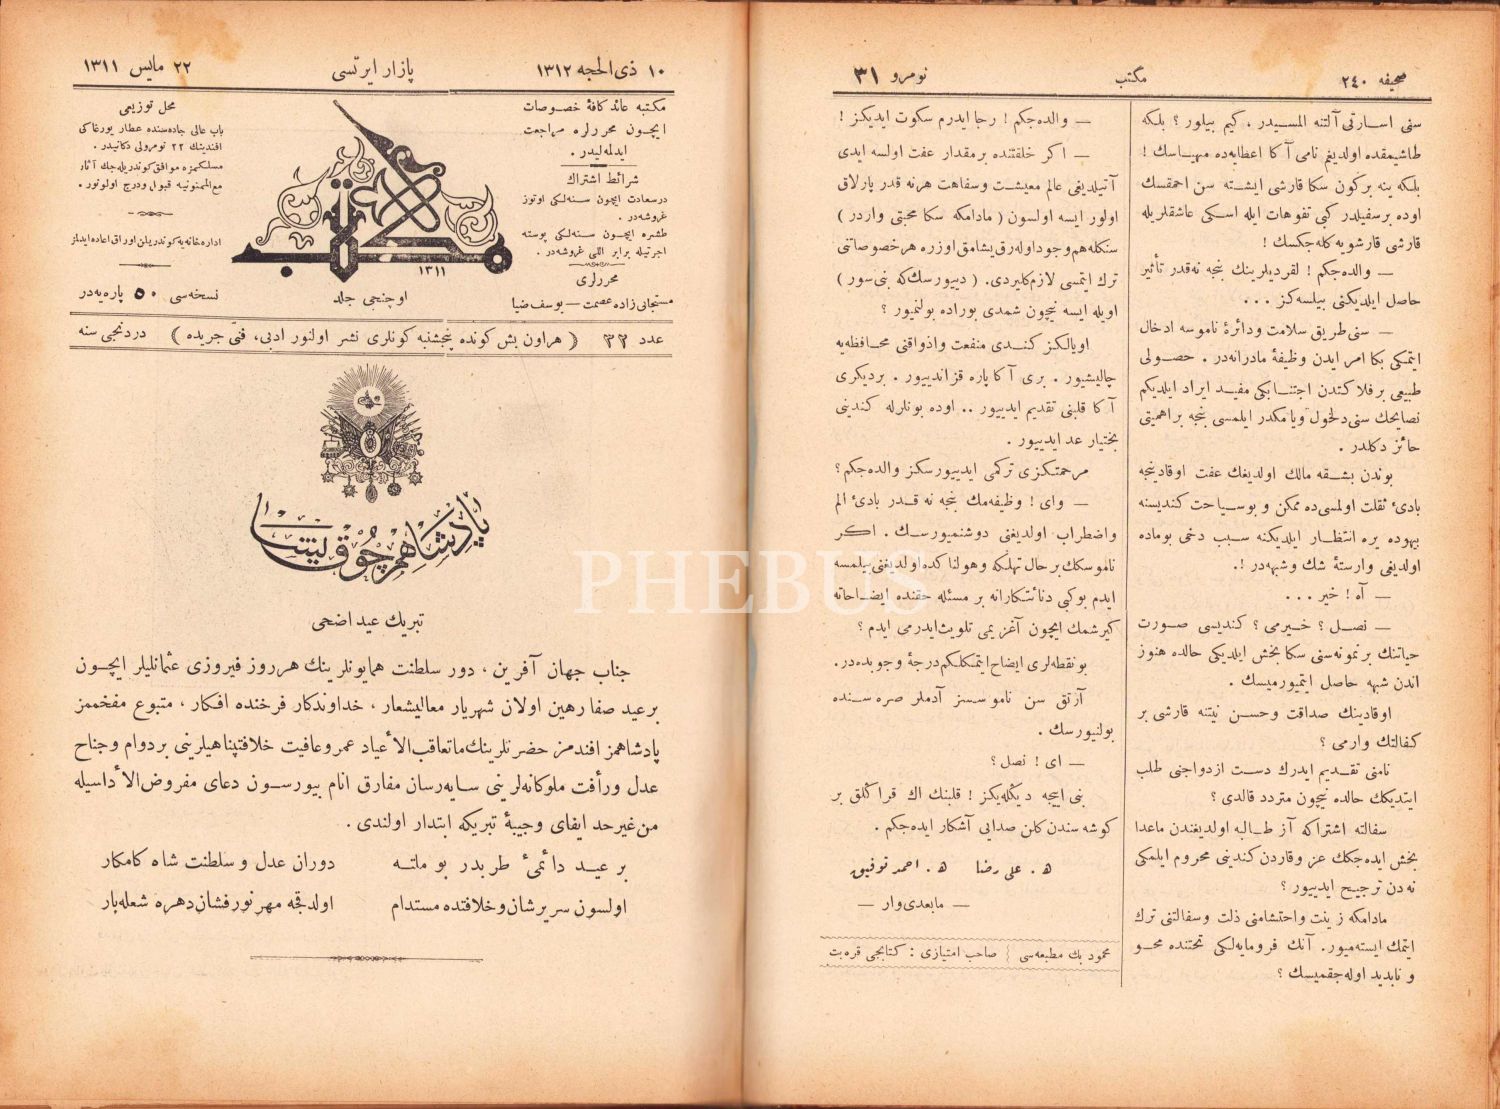 صحیفه ٢٤٠
مكتب
نومرو ٣١
سنی اسارتی آلتنه المسیدر ، كیم بیلور ؟ بلكه
طاشیمقده اولدیغم نامی آكا اعطایه‌ده مهیاسك !
بلكه ینه بركون سكا قارشی ایشته سن احمقسك
اوده برسفیلدر كبی تفوهات ایله اسكی عاشقلریله
قارشی قارشویه كله‌جكسك !
— والده‌جكم ! لقردیلرینك بنجه نه‌قدر تأثیر
حاصل ایلدیكنی بیلسه‌كز ...
— سنی طریق سلامت ودائرۀ ناموسه ادخال
ایتمكی بكا امر ایدن وظیفۀ مادرانه‌در . حصولی
طبیعی برفلاكتدن اجتنابكی مفید ایراد ایلدیكم
نصایحك سنی دلخول ویا مكدر ایلمسی بنجه براهمیتی
حائز دكلدر .
بوندن بشقه مالك اولدیغك عفت اوقادینجه
بادئ ثقلت اولمسی‌ده ممكن و بوسیاحت كندیسنه
بیهوده یره انتظار ایلدیكنه سبب دخی بوماده
اولدیغی وارستۀ شك وشبهه‌در !.
— آه ! خیر ...
— نصل ؟ خیرمی ؟ كندیسی صورت
حیاتنك بر نمونه‌سنی سكا بخش ایلدیكی حالده هنوز
اندن شبهه حاصل ایتمیورمیسك .
اوقادینك صداقت وحسن نیتنه قارشی بر
كفالتك وارمی ؟
نامنی تقدیم ایدرك دست ازدواجنی طلب
ایتدیكك حالده نیچون متردد قالدی ؟
سفالته اشتراكه آز طالبه اولدیغندن ماعدا
بخش ایده‌جكك عز وقاردن كندینی محروم ایلمكی
نه‌دن ترجیح ایدییور ؟
مادامكه زینت واحتشامنی ذلت وسفالتنی ترك
ایتمك ایسته‌میور. آنك فرومایه‌لكی تحتنده محو
و نابدید اوله‌جقمیسك ؟
— والده‌جكم ! رجا ایدرم سكوت ایدیكز !
— اكر خلقتنده برمقدار عفت اولسه ایدی
آتیلدیغی عالم معیشت وسفاهت هرنه قدر پارلاق
اولور ایسه اولسون ( مادامكه سكا محبتی واردر )
سنكله هم‌وجود اوله‌رق یشامق اوزره هرخصوصاتنی
ترك ایتمسی لازم كلیردی. ( دیییورسك كه بنی سور )
اویله ایسه نیچون شمدی بوراده بولنمیور ؟
اویالكز كندی منفعت واذواقنی محافظه‌یه
چالیشیور . بری آكا پاره قزاندییور . بردیكری
آكا قلبنی تقدیم ایدییور .. اوده بونلرله كندینی
بختیار عد ایدییور .
مرحمتكزی تركمی ایدییورسكز والده‌جكم ؟
— وای ! وظیفه‌مك بنجه نه قدر بادئ الم
واضطراب اولدیغنی دوشنمیورسك . اكر
ناموسكك برحال تهلكه وهولناكده اولدیغنی بیلمسه
ایدم بوكبی دنائتكارانه بر مسئله حقنده ایضاحاته
كیرشمك ایچون آغزیمی تلویث ایدرمی ایدم ؟
بونقطه‌لری ایضاح ایتمكلكم درجۀ وجوبده‌در.
آرتق سن ناموسسز آدملر صره‌سنده
بولنیورسك .
— ای ! نصل ؟
بنی اییجه دیكله‌یكز ! قلبنك اك قراكلق بر
كوشه‌سندن كلن صدایی آشكار ایده‌جكم .
ه. علی رضا
ه. احمد توفیق
— مابعدی وار —
محمود بك مطبعه‌سی
صاحب امتیازی : كتابجی قره‌بت
١٠ ذی‌الحجه ١٣١٢
پازار ایرتسی
٢٢ مایس ١٣١١
مكتبه عائد كافۀ خصوصات
ایچون محررلره مراجعت
ایدلمه‌لیدر .
شرائط اشتراك
درسعادت ایچون سنه‌لكی اوتوز
غروشه‌در .
طشره ایچون سنه‌لكی پوسته
اجرتیله برابر اللی غروشه‌در .
محررلری
مستجابی زاده عصمت — یوسف ضیا
مكتب
١٣١١
اوچنجی جلد
محل توزیعی
باب عالی جاده‌سنده عطار یورغاكی
افندینك ٢٢ نومرولی دكانیدر .
مسلكمزه موافق كوندریله‌جك آثار
مع‌الممنونیه قبول ودرج اولونور .
اداره‌خانه‌یه كوندریلن اوراق اعاده ایدلمز
نسخه‌سی ٥٠ پاره‌یه‌در
عدد ٣٢
( هر اون بش كونده پنجشنبه كونلری نشر اولنور ادبی، فنی جریده )
دردنجی سنه
پادشاهم چوق یشا
تبریك عید اضحی
جناب جهان آفرین ، دور سلطنت همایونلرینك هرروز فیروزی عثمانلیلر ایچون
برعید صفا رهین اولان شهریار معالیشعار ، خداوندكار فرخنده افكار ، متبوع مفخممز
پادشاهمز افندمز حضرتلرینك ماتعاقب الأعیاد عمر وعافیت خلافتپناهیلرینی بردوام وجناح
عدل ورأفت ملوكانه‌لرینی سایه‌رسان مفارق انام بیورسون دعای مفروض الأداسیله
من غیر حد ایفای وجیبۀ تبریكه ابتدار اولندی .
بر عید دائمئ طربدر بو ملته
دوران عدل و سلطنت شاه كامكار
اولسون سریرشان وخلافتده مستدام
اولدقجه مهر نورفشان دهره شعله‌بار
PHEBUS